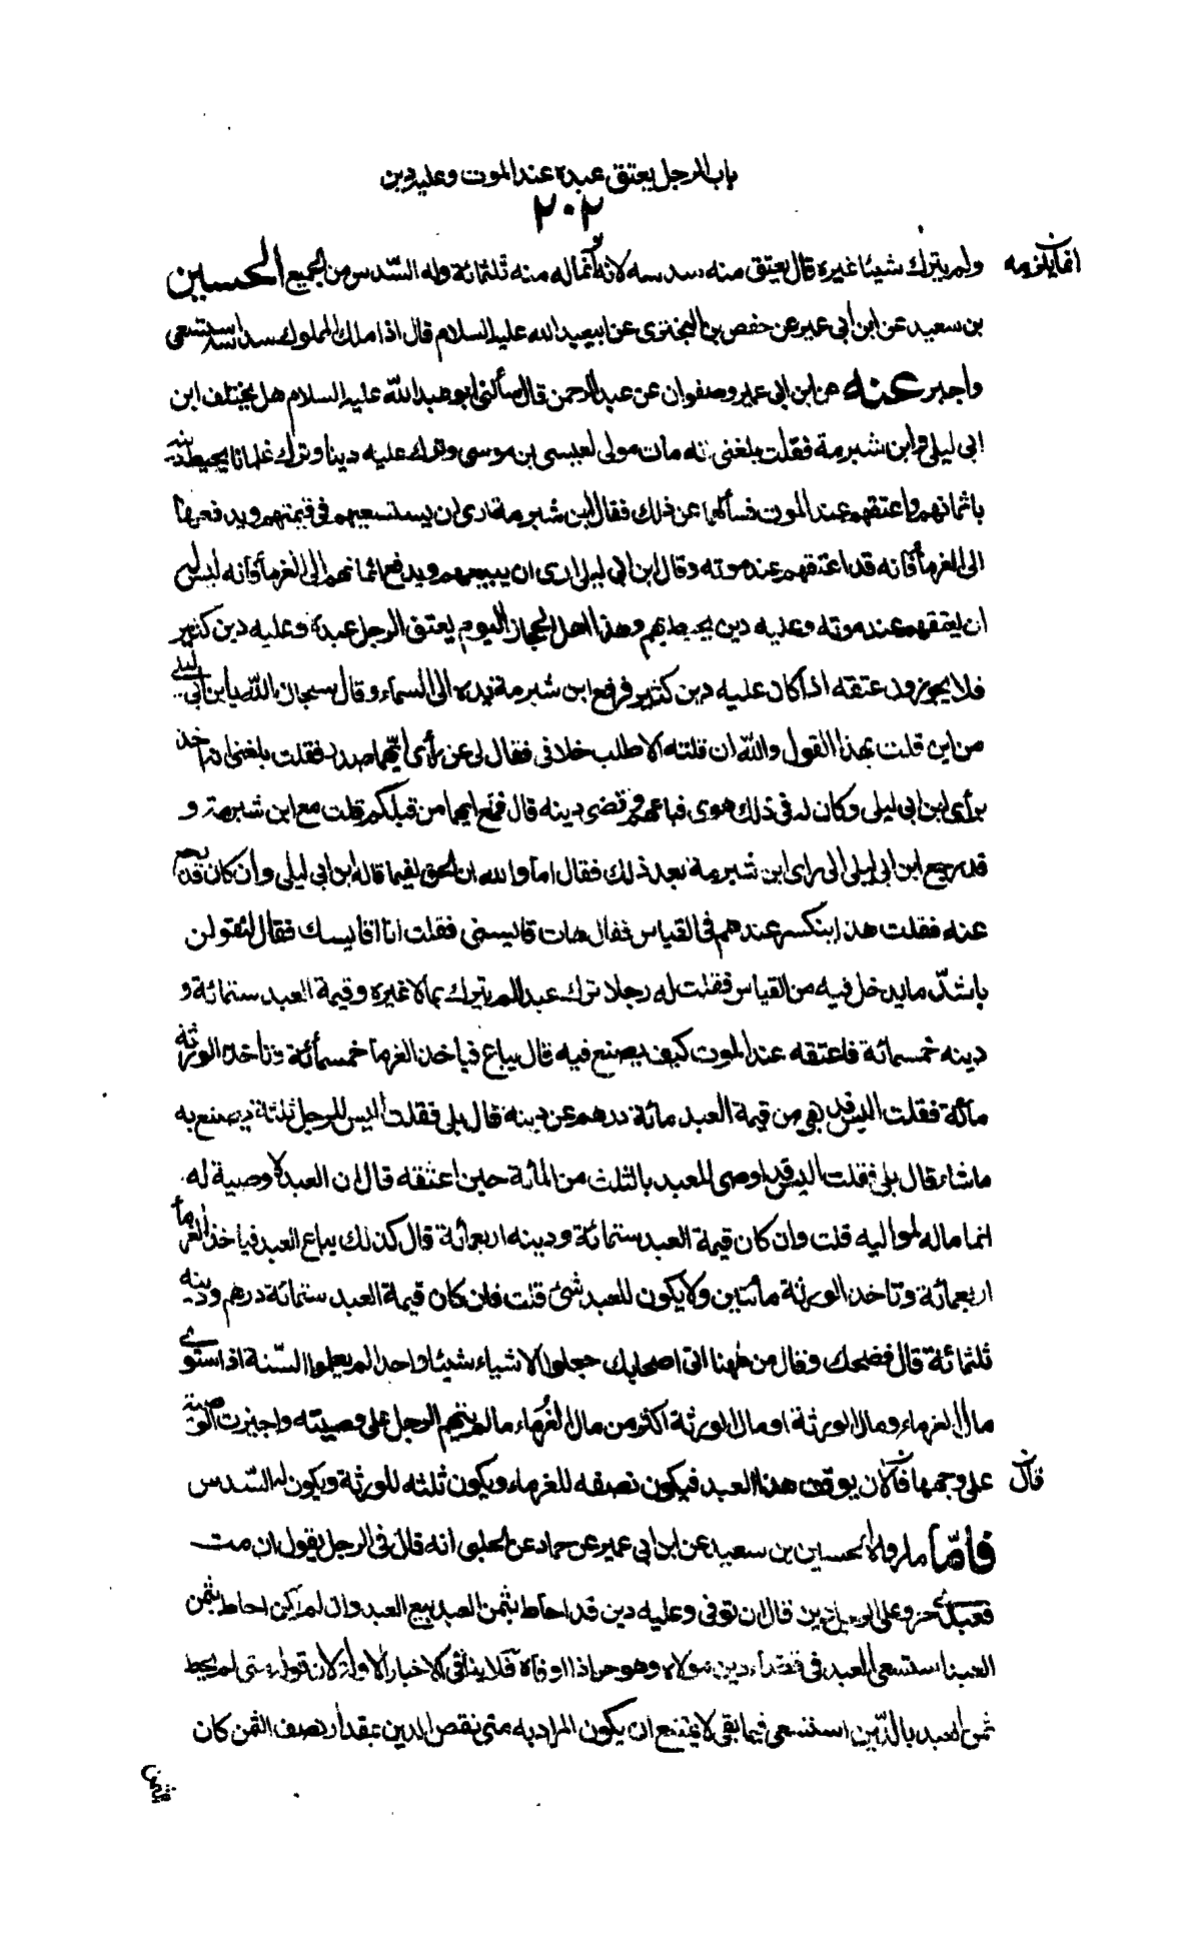 باب الرجل يعتق عبده عند الموت وعليه دين
٢٠٢
ولم يترك شيئا غيره قال يعتق منه سدسه لانه انما له منه ثلثمائة وله السّدس من الجميع الحسين
انما يلزمه
بن سعيد عن ابن ابي عمير عن حفص بن البختري عن ابيعبد الله عليه السلام قال اذا ملك المملوك سدسه استسعى
واجبر عنه عن ابن ابي عمير وصفوان عن عبد الرحمن قال سألنى ابو عبد الله عليه السلام هل يختلف ابن
ابي ليلى وابن شبرمة فقلت بلغنى انه مات مولى لعيسى بن موسى وترك عليه دينا وترك غلمانا يحيط دينه
باثمانهم واعتقهم عند الموت فسألهما عن ذلك فقال ابن شبرمة ارى ان يستسعيهم في قيمتهم ويدفعها
الى الغرمأ فانه قد اعتقهم عند موته وقال ابن ابي ليلى ارى ان يبيعهم ويدفع اثمانهم الى الغرمأ فانه ليس له
ان يعتقهم عند موته وعليه دين يحيط بهم وهذا اهل الحجاز اليوم يعتق الرجل عبده وعليه دين كثير
فلا يجوزون عتقه اذا كان عليه دين كثير فرفع ابن شبرمة يده الى السماء وقال سبحان الله يا ابن ابي ليلى
من اين قلت بهذا القول والله ان قلته الا طلب خلافى فقال لى عن رأى ايّهما صدر فقلت بلغنى انه اخذ
برأى ابن ابي ليلى وكان له في ذلك هوى فباعهم وقضى دينه قال فمع ايهما من قبلكم قلت مع ابن شبرمة و
قد رجع ابن ابي ليلى الى راى ابن شبرمة بعد ذلك فقال اما والله ان الحق لفيما قاله ابن ابي ليلى وان كان قد رجع
عنه فقلت هذا ينكسر عندهم في القياس فقال هات قايسنى فقلت انا اقايسك فقال لتقولن
باشدّ ما يدخل فيه من القياس فقلت له رجلا ترك عبدا لم يترك مالا غيره وقيمة العبد ستمائة و
دينه خمسمائة فاعتقه عند الموت كيف يصنع فيه قال يباع فياخذ الغرما خمسمأئة وتاخذ الورثة
مائة فقلت اليس قد بقى من قيمة العبد مائة درهم عن دينه قال بلى فقلت اليس للرجل ثلثة يصنع به
ماشاء قال بلى فقلت اليس قد اوصى للعبد بالثلث من المائة حين اعتقه قال ان العبد لا وصية له
انما ماله لمواليه قلت وان كان قيمة العبد ستمائة ودينه اربعمائة قال كذلك يباع العبد فياخذ الغرما
اربعمائة وتاخذ الورثة مأتين ولا يكون للعبد شئ قلت فان كان قيمة العبد ستمائة درهم ودينه
ثلثمائة قال فضحك وقال من ههنا اتى اصحابك جعلوا الاشياء شيئا واحدا لم يعلموا السّنة اذا استوى
مال الغرماء ومال الورثة او مال الورثة اكثر من مال الغرماء ما لم يتهم الرجل على وصيته واجيزت الوصية
على وجهها فالان يوقف هذا العبد فيكون نصفه للغرماء ويكون ثلثه للورثة ويكون له السّدس
قال
فأمّا ما رواه الحسين بن سعيد عن ابن ابي عمير عن حماد عن الحلبى انه قال في الرجل يقول ان مت
فعبدى حر وعلى الرجل دين قال ان توفى وعليه دين قد احاط بثمن العبد بيع العبد وان لم يكن احاط بثمن
العبد استسعى العبد في قضاء دين مولاه وهو حر اذا اوفاه فلا ينافى الاخبار الاولة لان قوله متى لم يحط
ثمن العبد بالدّين استسعى فيما بقى لا يمتنع ان يكون المراد به متى نقص الدين بمقدار نصف الثمن كان